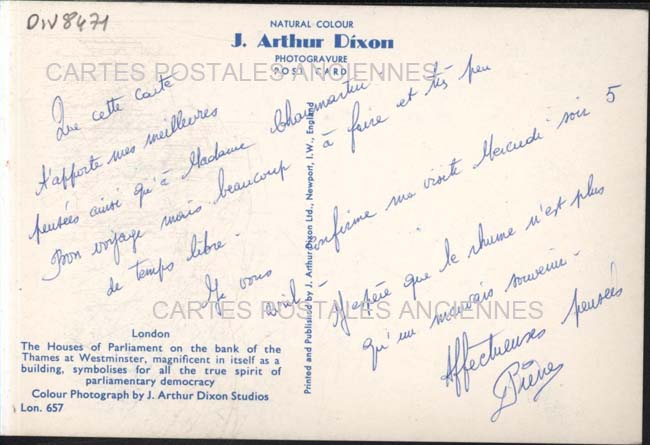 DIV8471
NATURAL COLOUR
J. Arthur Dixon
PHOTOGRAVURE
POST CARD
CARTES POSTALES ANCIENNES
Que cette carte
t'apporte mes meilleures
pensées ainsi qu'à Madame Charmartin.
Bon voyage mais beaucoup à faire et très peu
de temps libre.
Je vous confirme ma visite Mercredi soir 5
avril. J'espère que le rhume n'est plus
qu'un mauvais souvenir.
Affectueuses pensées
Pierre
CARTES POSTALES ANCIENNES
Printed and Published by J. Arthur Dixon Ltd., Newport, I.W., England
London
The Houses of Parliament on the bank of the
Thames at Westminster, magnificent in itself as a
building, symbolises for all the true spirit of
parliamentary democracy
Colour Photograph by J. Arthur Dixon Studios
Lon. 657